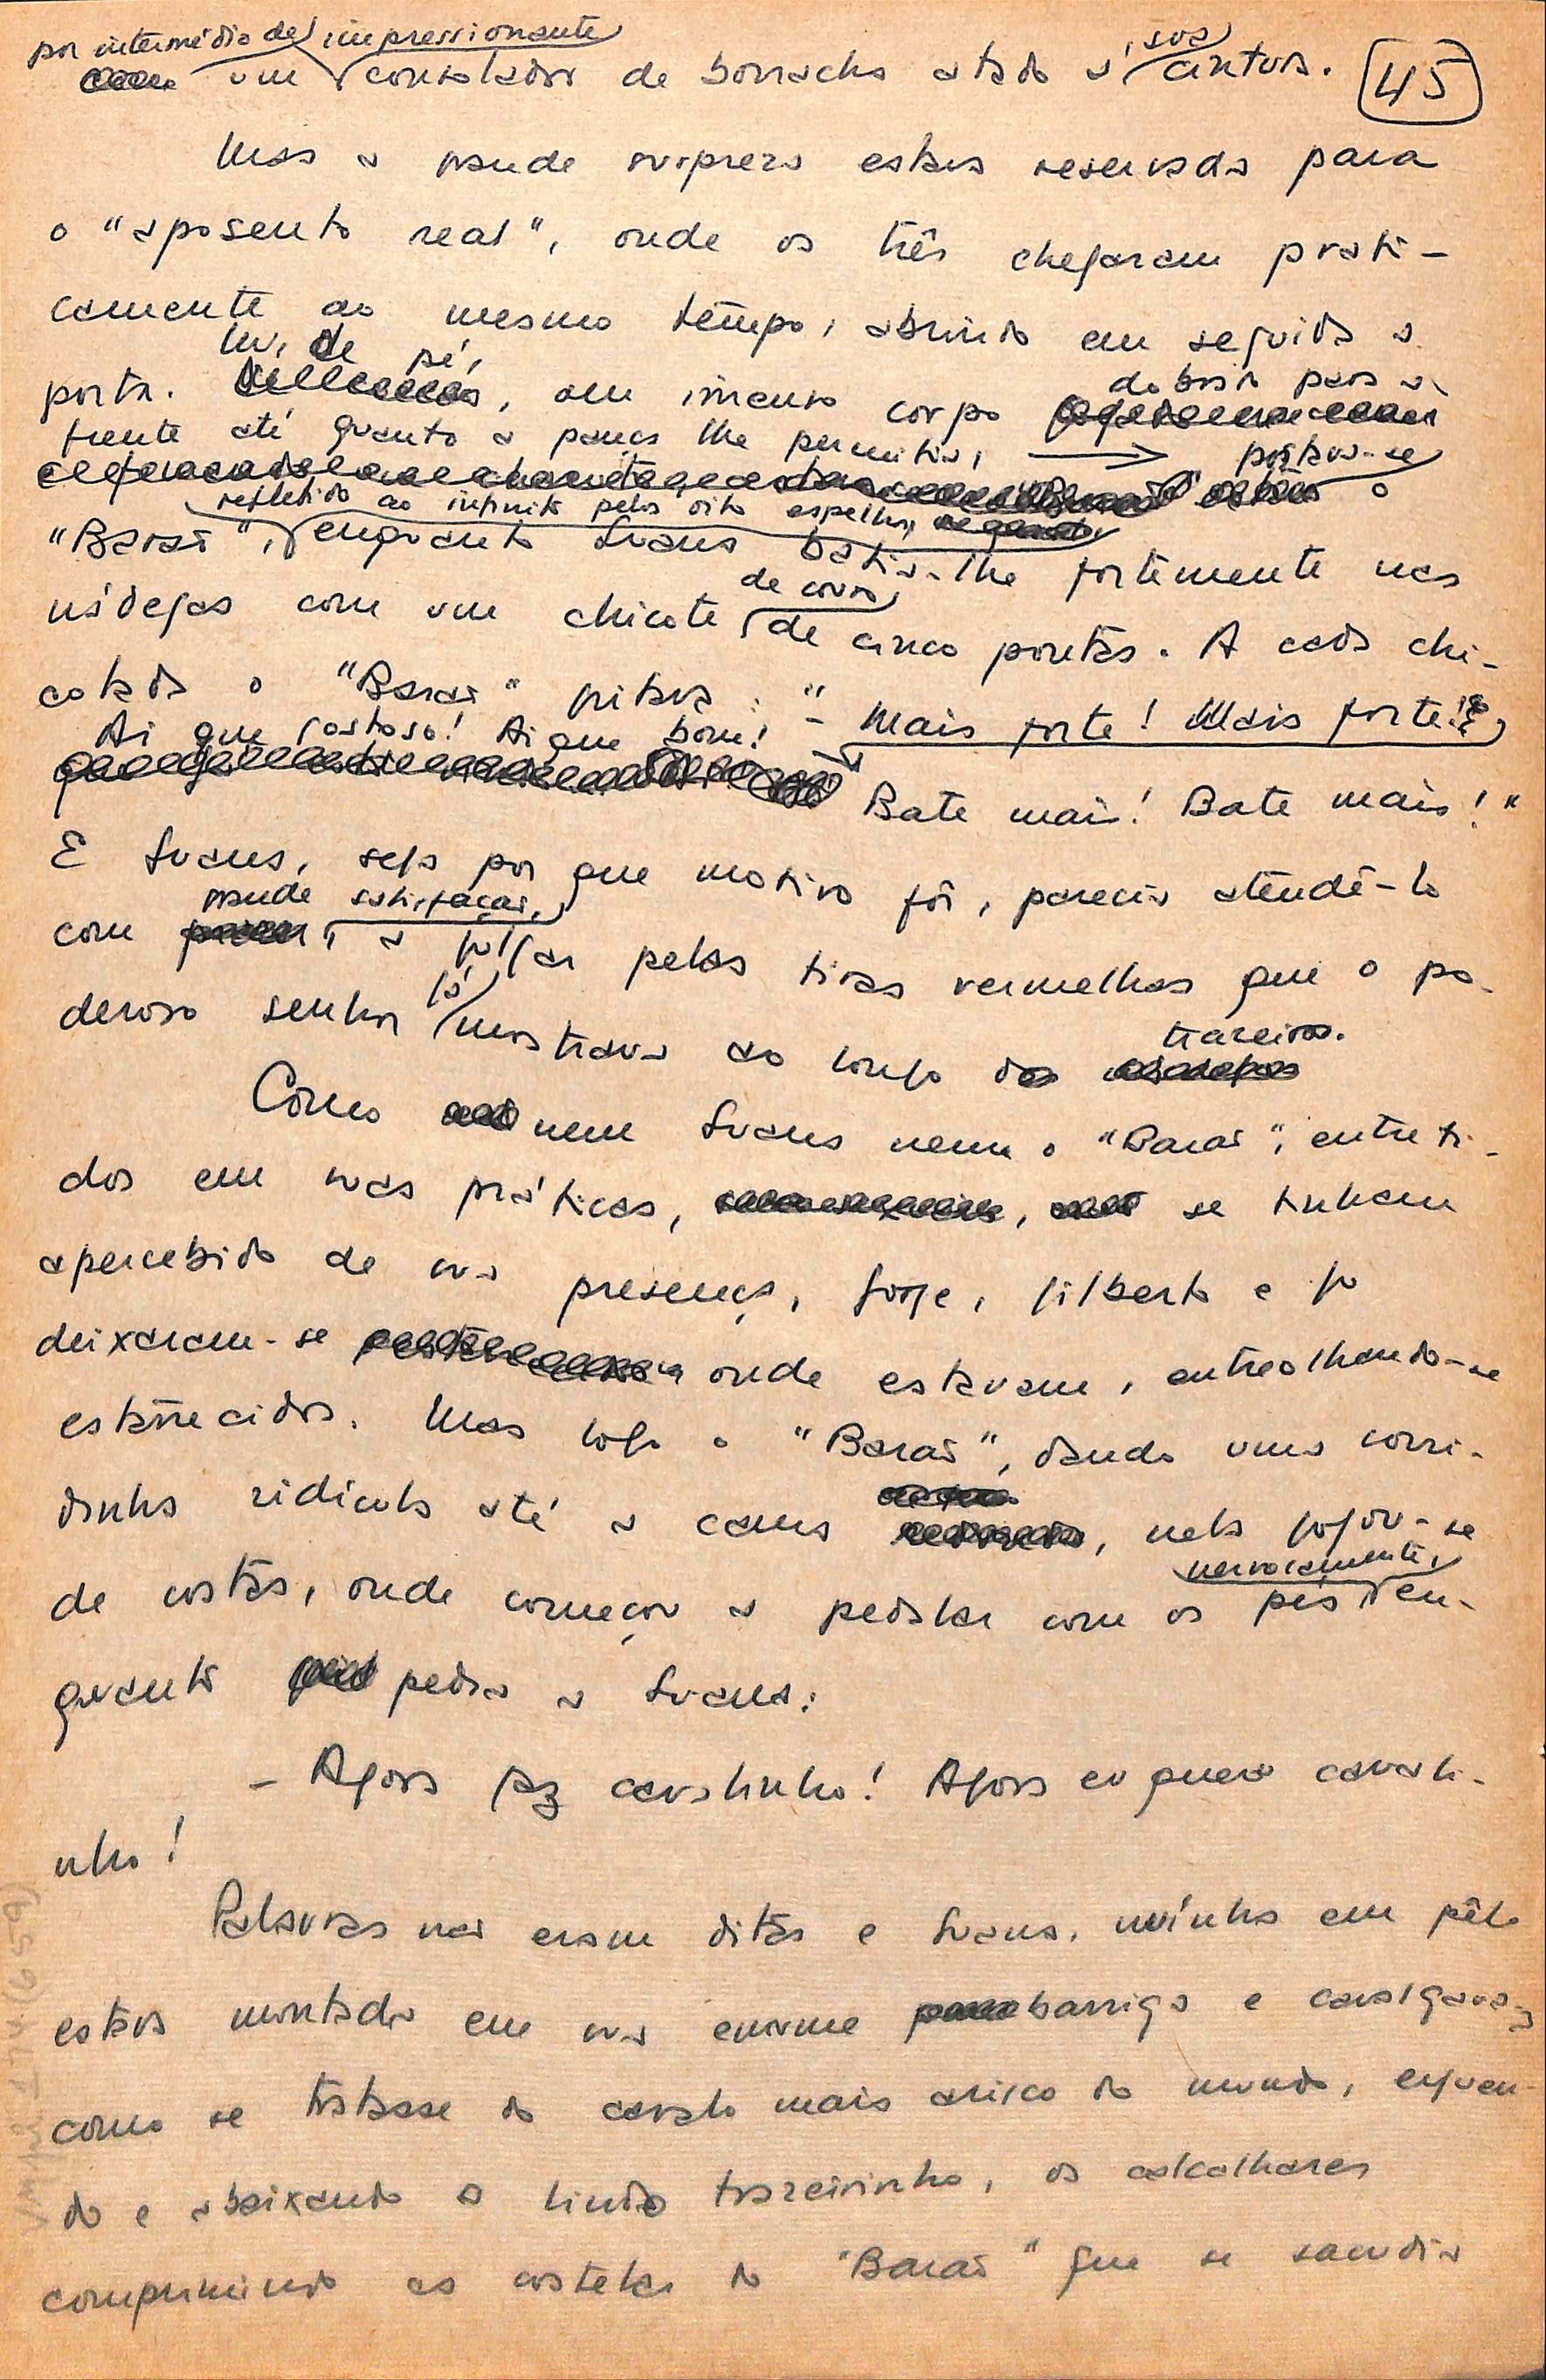 por intermédio de impressionante
um consolador de borracha atado à sua cintura. 45
Mas a grande surpreza estava reservada para
o "aposento real", onde os três chegaram prati-
camente ao mesmo tempo, abrindo em seguida a
nu, de pé,
porta. , seu imenso corpo dobrado para a
frente até quanto a pança lhe permitia, postava-se
o
refletido ao infinito pelos oito espelhos,
"Barão", enquanto Luana batia-lhe fortemente nas
de couro,
nádegas com um chicote de cinco pontas. A cada chi-
cotada o "Barão" gritava: "- Mais forte! Mais forte!
Ai que gostoso! Ai que bom!
Bate mais! Bate mais!"
E Luana, seja por que motivo fôr, parecia atendê-lo
grande satisfação,
com a julgar pelas tiras vermelhas que o po-
já
deroso senhor mostrava ao longo do
trazeiro.
Como nem Luana nem o "Barão", entreti-
dos em suas práticas, se tinham
apercebido de sua presença, Jorge, Gilberto e Jô
deixaram-se onde estavam, entreolhando-se
estarrecidos. Mas logo o "Barão", dando uma corri-
dinha ridícula até a cama , nela jogou-se
nervosamente,
de costas, onde começou a pedalar com os pés en-
quanto pedia a Luana:
- Agora faz cavalinho! Agora eu quero cavali-
nho!
Palavras não eram ditas e Luana, nuínha em pêlo
estava montada em sua enorme barriga e cavalgava-
como se tratasse do cavalo mais arisco do mundo, erguen-
do e abaixando o lindo trazeirinho, os calcalhares
comprimindo as costelas do "Barão" que se sacudia